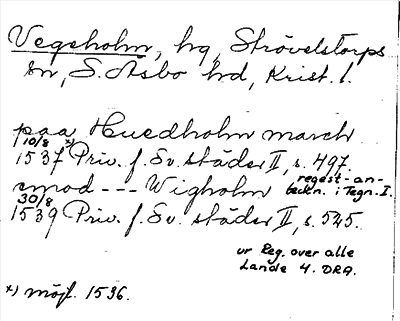 Vegeholm, hg, Strövelstorps
sn, S. Åsbo hd, Krist. l.
paa Huedholm march
10/8 *)
1537 Priv. f. Sv. städer II, s. 497
emod --- Wigholm regest-an-
teckn. i Tegn. I.
30/8
1539 Priv. f. Sv. städer II, s. 545.
ur Reg. over alle
Lande 4. DRA.
*) möjl. 1536.